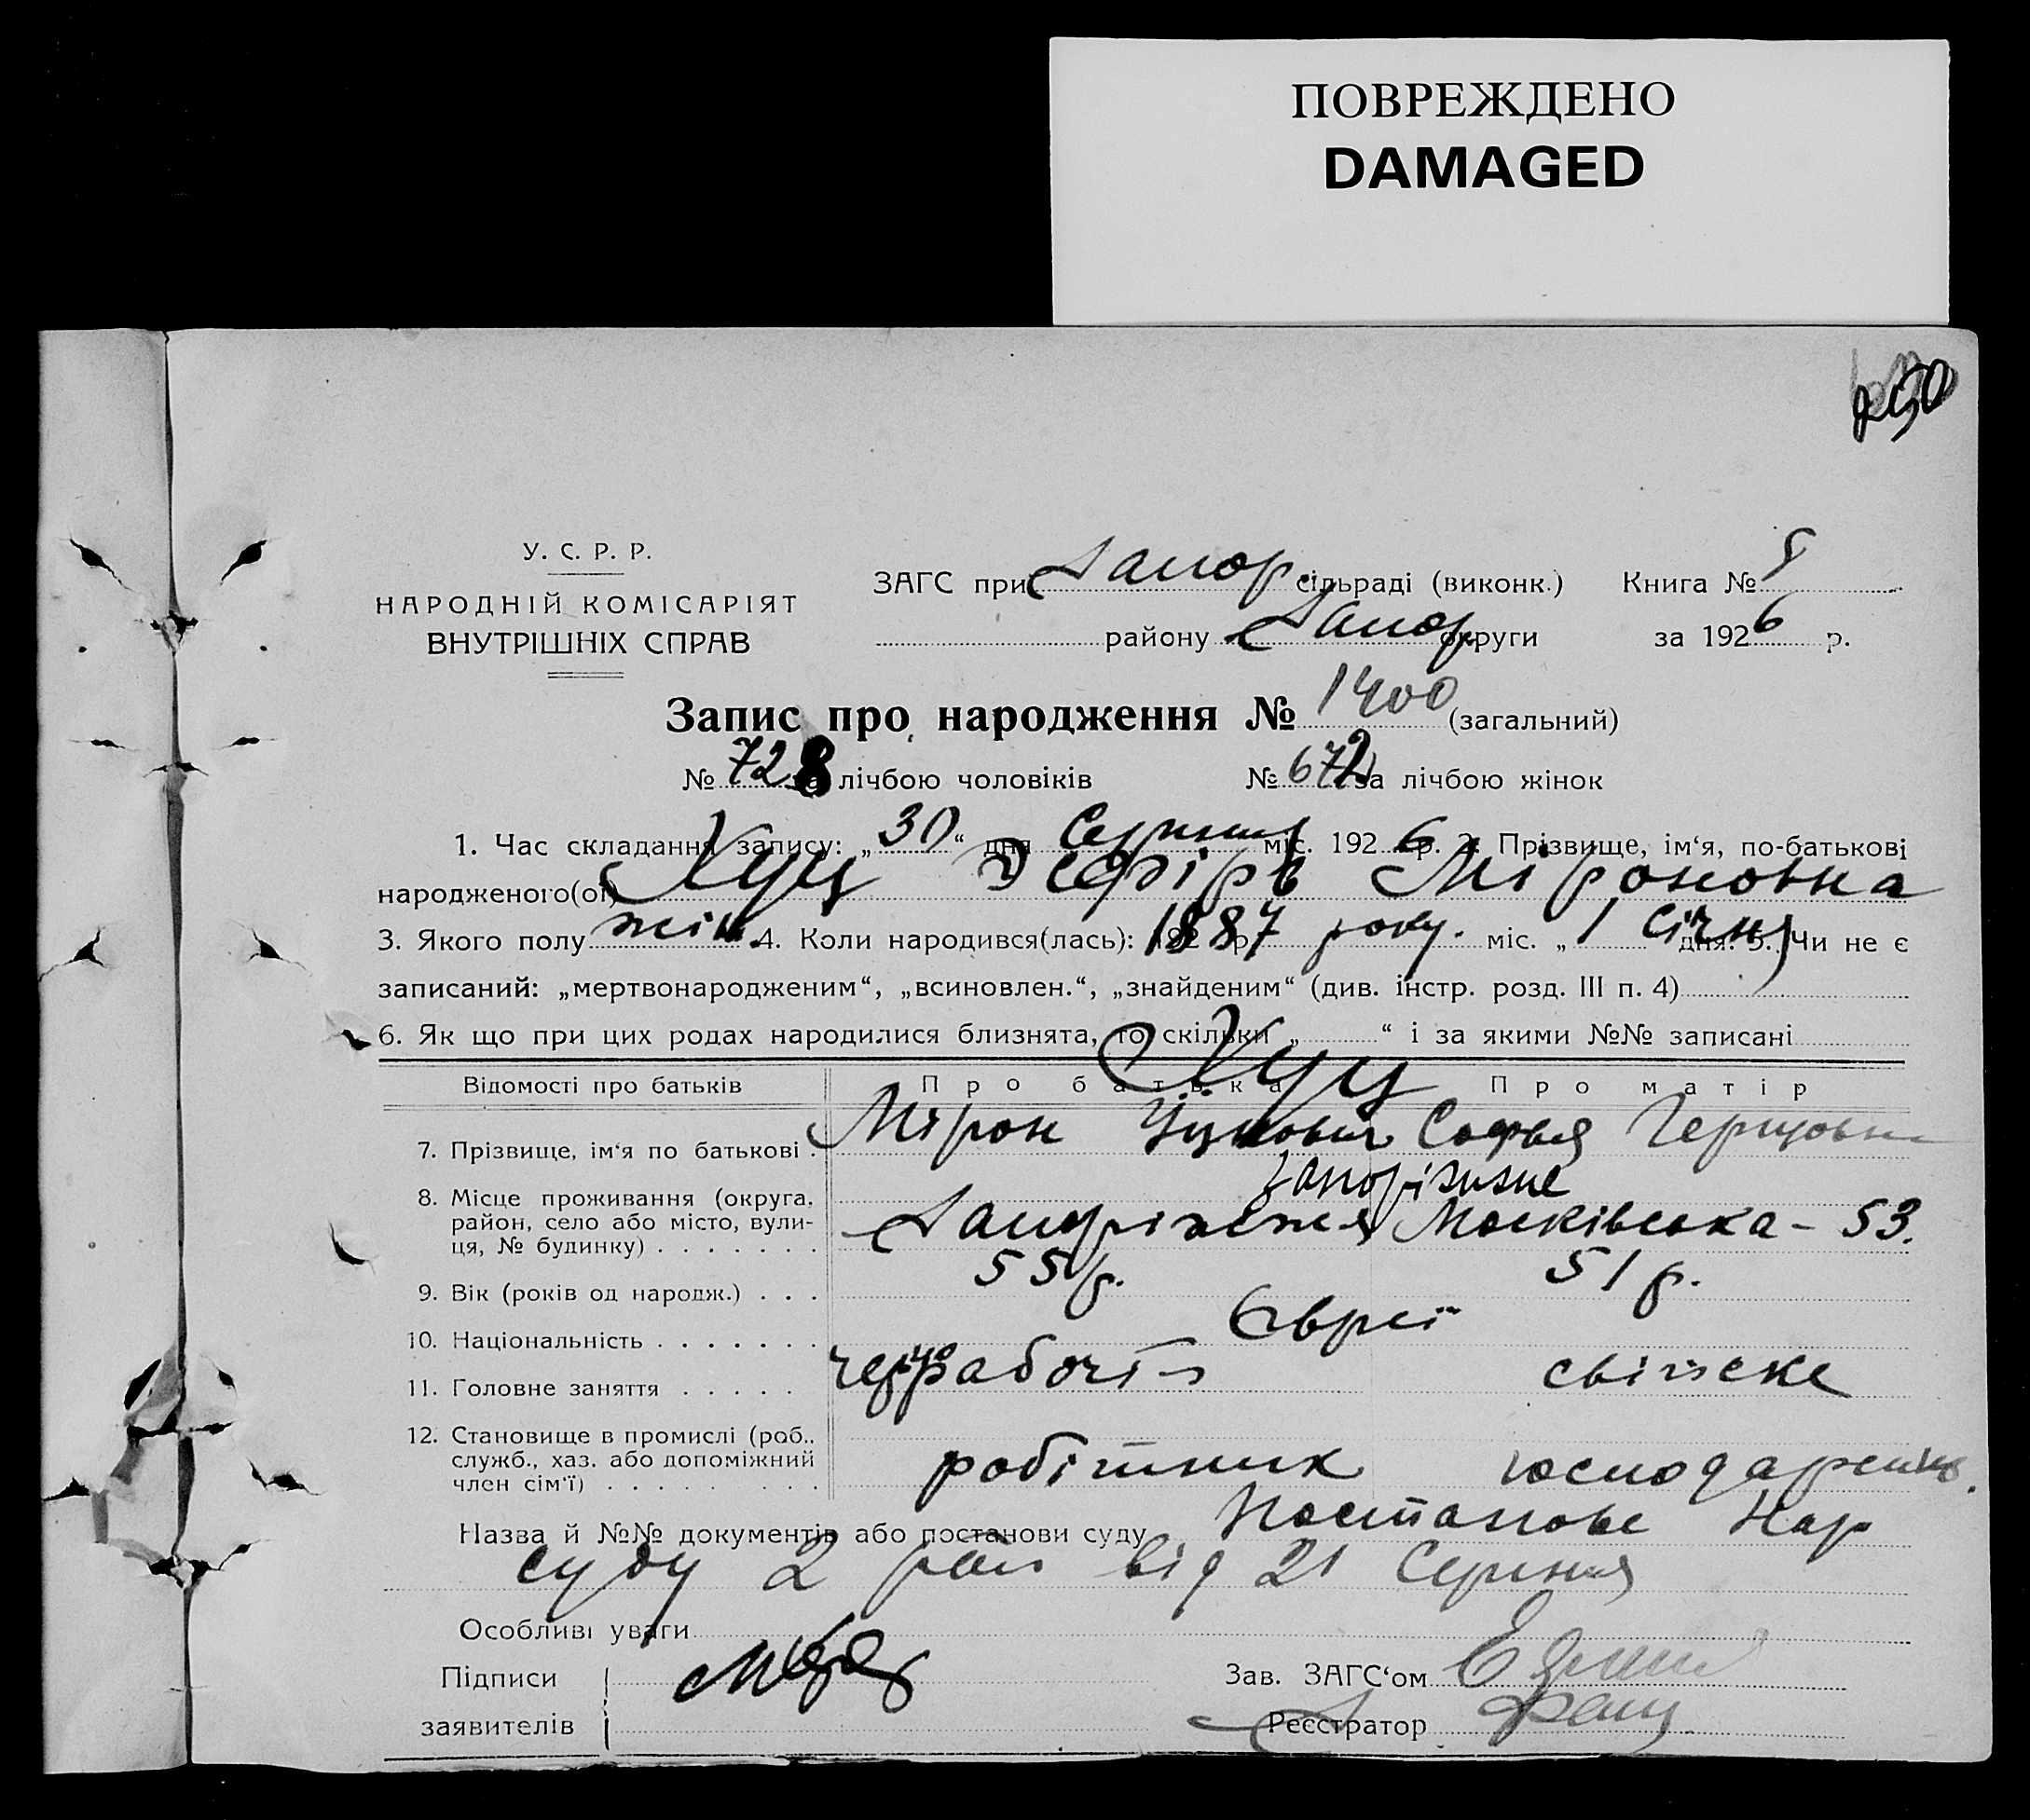 ПОВРЕЖДЕНО
DAMAGED
У. С. Р. Р.
НАРОДНІЙ КОМІСАРІЯТ
ВНУТРІШНІХ СПРАВ
ЗАГС при Запор сільраді (виконк.) Книга №
району Запор округи за 1926 р.
Запис про народження № 1400 (загальний)
№ 728 за лічбою чоловіків № 672 за лічбою жінок
1. Час складання запису: „30“ дня Серпня міс. 1926 р. 2. Прізвище, ім‘я, по-батькові
народженого(ої) Хуц Эсфірь Міроновна
3. Якого полу жін. 4. Коли народився(лась): 1887 року. міс. „1 Січня дня. 5. Чи не є
записаний: „мертвонародженим“, „всиновлен.“, „знайденим“ (див. інстр. розд. III п. 4)
6. Як що при цих родах народилися близнята, то скільки „ “ і за якими №№ записані
Хуц
Відомості про батьків Про батька Про матір
7. Прізвище, ім‘я по батькові . Мірон Софья Герцовна
8. Місце проживання (округа, район, село або місто, вулиця, № будинку) . . . . . . . Запоріжжя Московська - 53.
9. Вік (років од народж.) . . . 55 р. 51 р.
10. Національність . . . . . . . Євреї
11. Головне заняття . . . . .
12. Становище в промислі (роб., служб., хаз. або допоміжний член сім‘ї) . . . . . . . . робітник
Назва й №№ документів або постанови суду Постанова Нар
суду 2 рай від 21 Серпня
Особливі уваги
Підписи заявителів
Зав. ЗАГС‘ом
Реєстратор